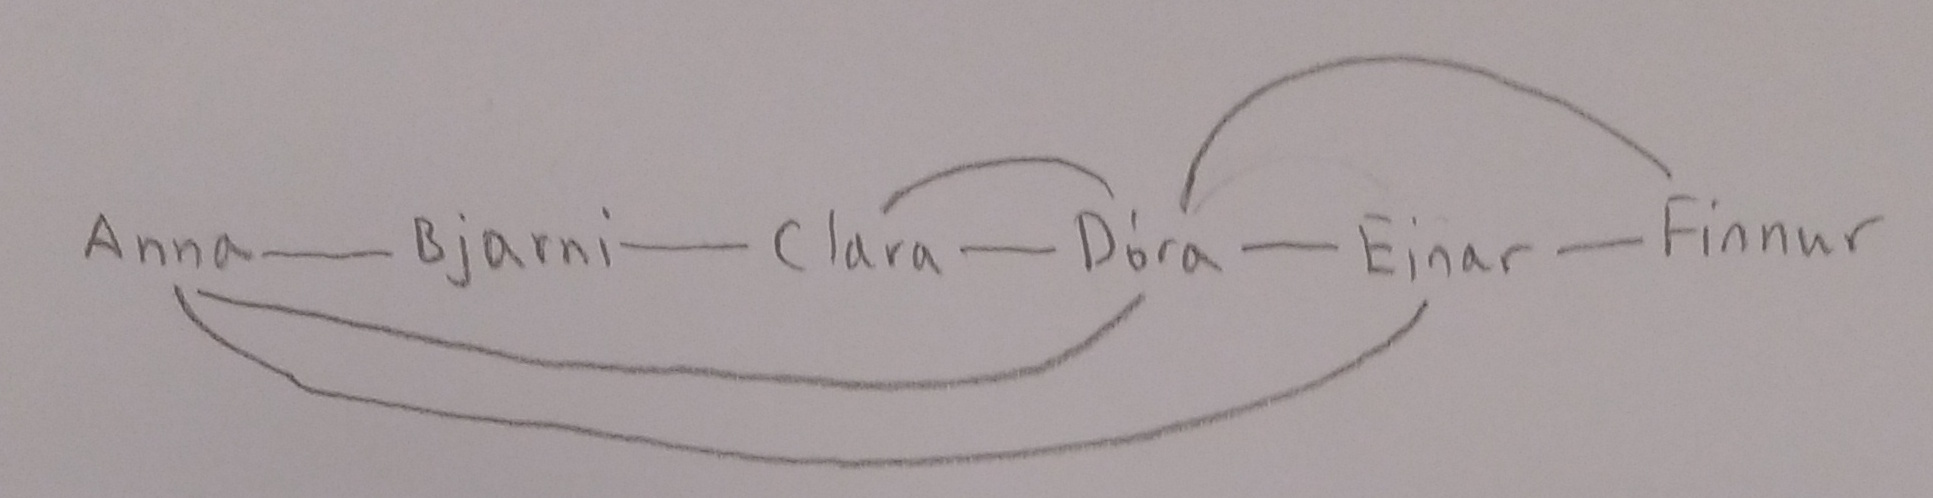 Anna Bjarni Clara Dóra Einar Finnur